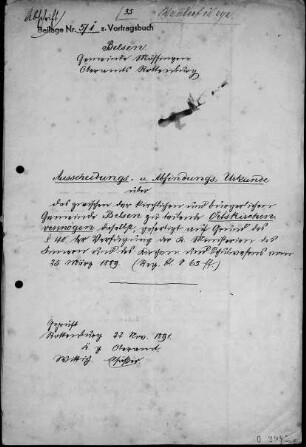 Abschrift
35
Beilage Nr. 51 z. Vortragsbuch
Belsen
Gemeinde Mössingen
Oberamts Rottenburg
Ausscheidungs- u. Abfindungs-Urkunde
über
das zwischen der kirchlichen und bürgerlichen
Gemeinde Belsen zu teilende Ortskirchen-
vermögen daselbst, gefertigt auf Grund des
§ 40 der Verfügung der K. Ministerien des
Innern und des Kirchen- und Schulwesens vom
25 März 1889. (Reg. Bl. S 63 ff.)
Geprüft
Rottenburg 27 Nov. 1891.
K. g. Oberamt
Wittich